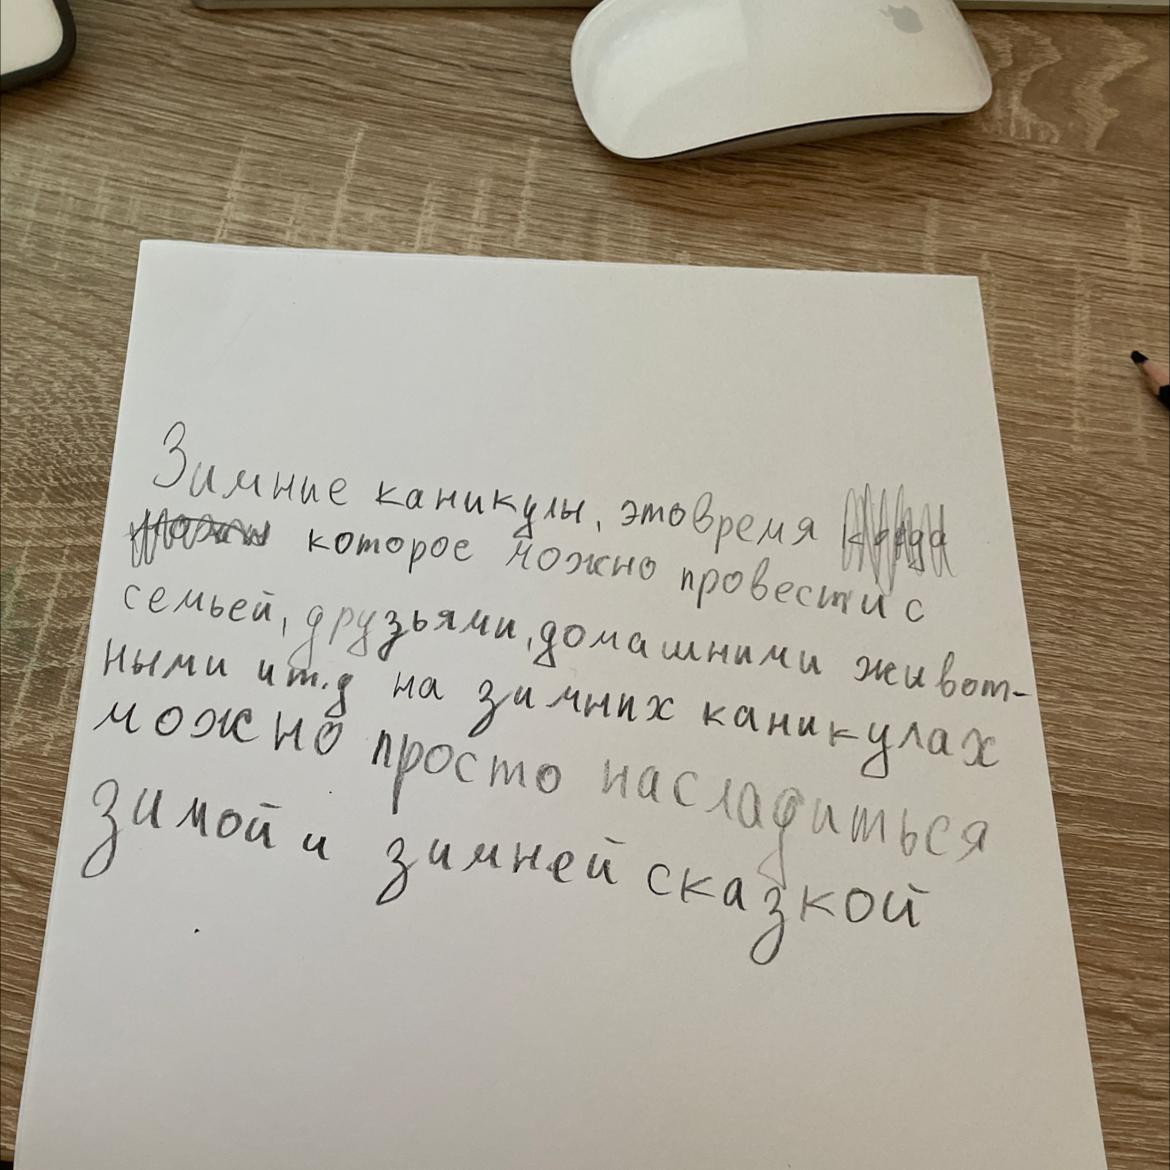 Зимние каникулы, это время
которое можно провести с
семьей, друзьями, домашними живот-
ными и т.д на зимних каникулах
можно просто насладиться
зимой и зимней сказкой